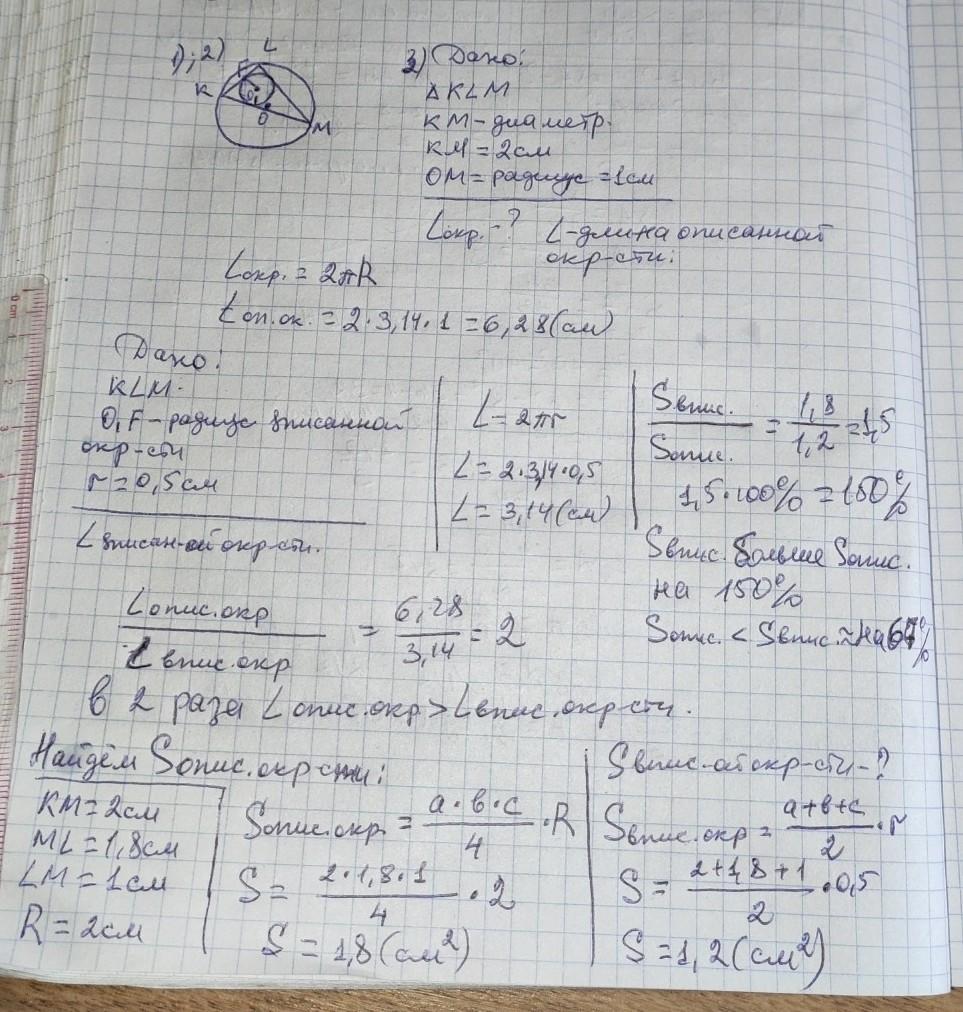 1);2)
L
F
K
O₁
O
M
3) Дано:
ΔKLM
KM - диаметр.
KM = 2см
OM = радиус = 1см
Lокр. - ? L - длина описанной
окр-сти.
Lокр. = 2πR
Lоп.ок. = 2·3,14·1 = 6,28(см)
Дано:
KLM.
O₁F - радиус вписанной
окр-сти
r = 0,5см
L вписан-ой окр-сти.
L = 2πr
L = 2·3,14·0,5
L = 3,14(см)
Sвпис./Sопис. = 1,8/1,2 = 1,5
1,5·100% = 150%
Sвпис. больше Sопис.
на 150%
Sопис. < Sвпис. ≈ на 67%
Lопис.окр/L впис.окр = 6,28/3,14 = 2
в 2 раза Lопис.окр > Lвпис.окр-сти.
Найдём Sопис.окр-сти:
KM = 2см
ML = 1,8см
LM = 1см
R = 2см
Sопис.окр. = a·b·c/4 · R
S = 2·1,8·1/4 · 2
S = 1,8(см²)
Sвпис-ой окр-сти - ?
Sвпис.окр = a+b+c/2 · r
S = 2+1,8+1/2 · 0,5
S = 1,2(см²)